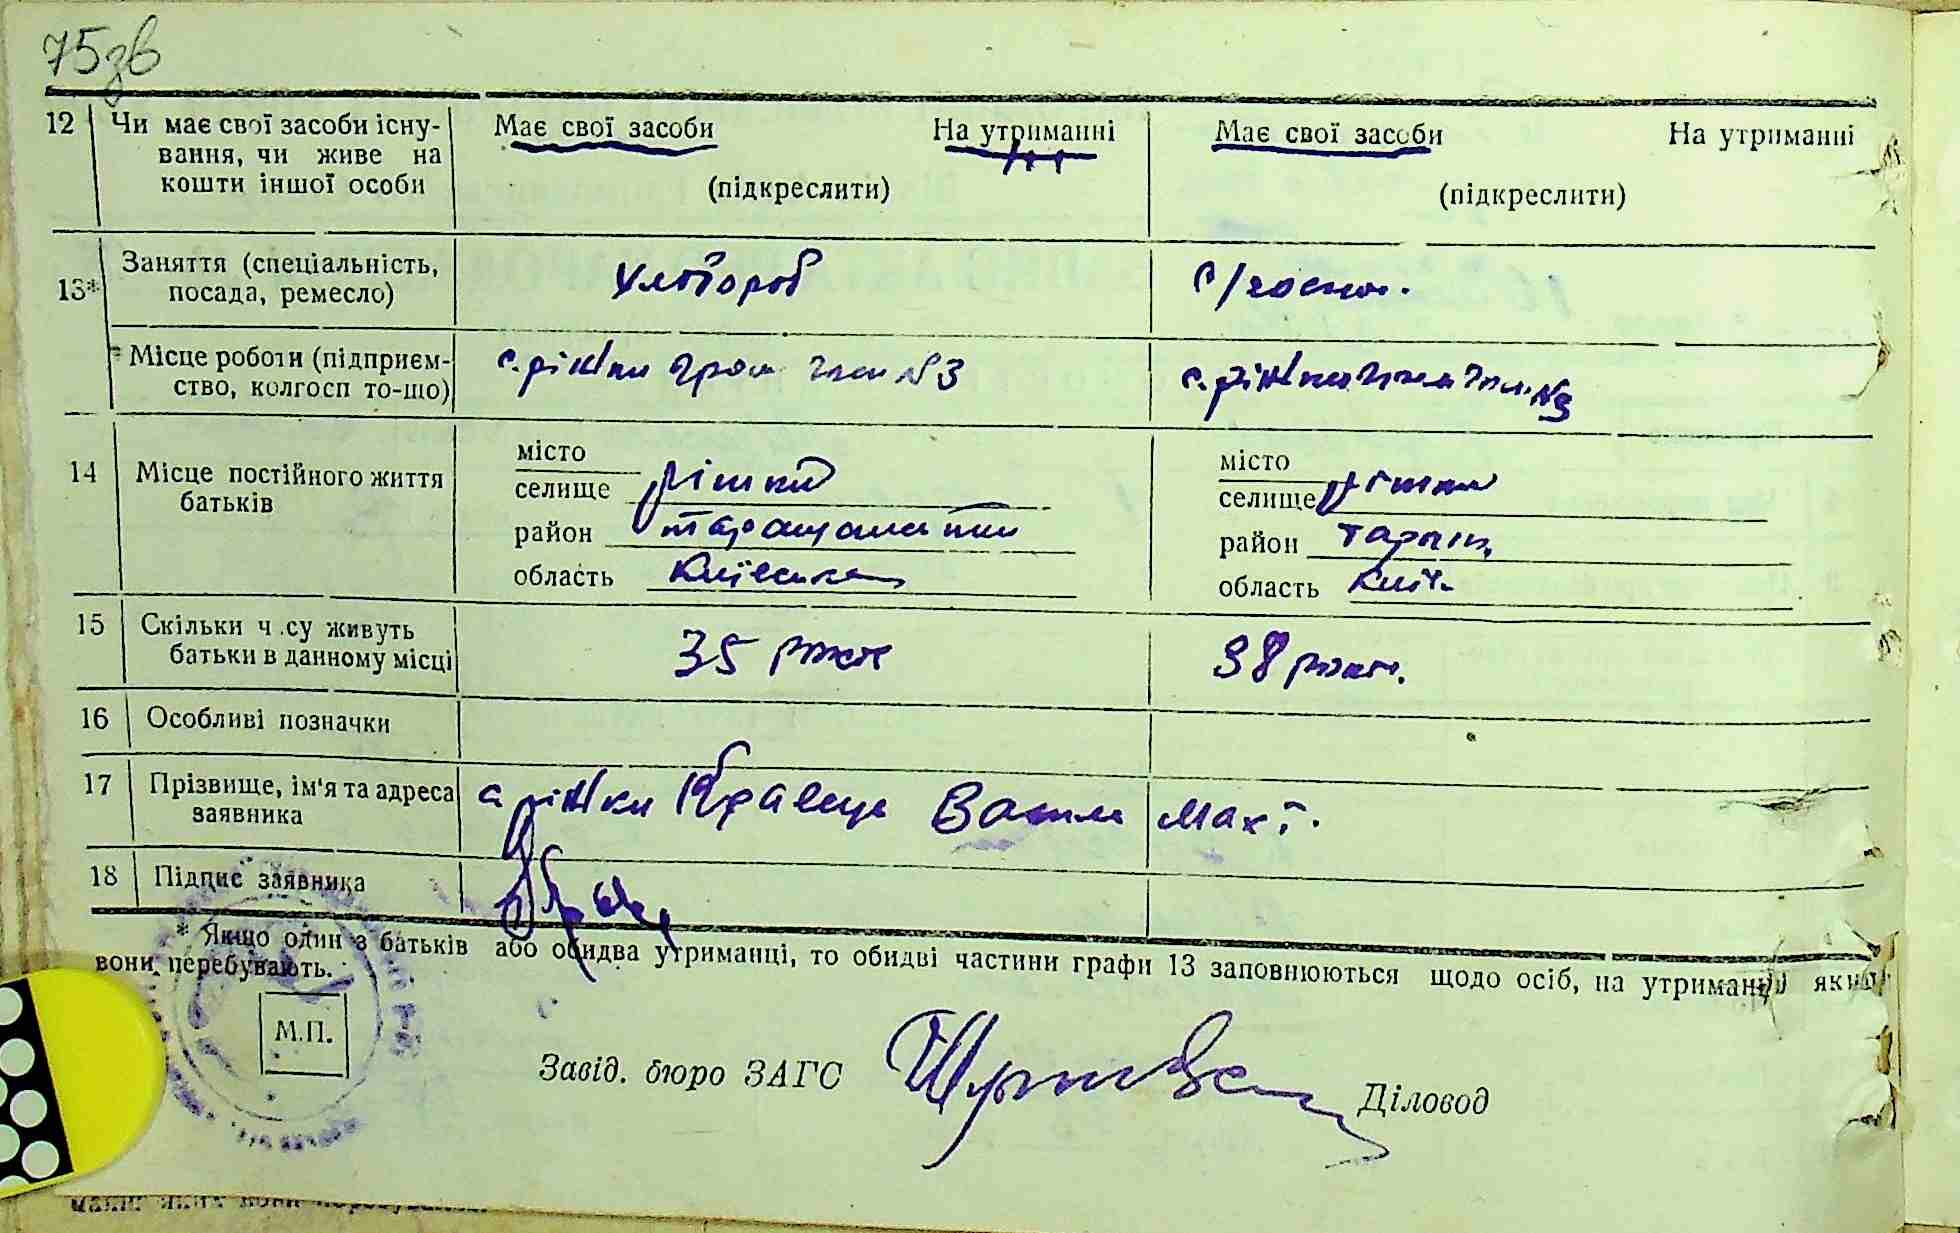 75зв
12 Чи має свої засоби існу- Має свої засоби На утриманні Має свої засоби На утриманні
вання, чи живе на
кошти іншої особи (підкреслити) (підкреслити)
13* Заняття (спеціальність, хлібороб с/господ.
посада, ремесло)
Місце роботи (підприєм- с. ріжки гром №3 с. ріжки №3
ство, колгосп то-що)
14 Місце постійного життя місто місто
батьків селище ріжки селище ріжки
район таращанський район таращ.
область Київська область Київ.
15 Скільки ч.су живуть 35 років 38 років.
батьки в данному місці
16 Особливі позначки
17 Прізвище, ім'я та адреса с ріжки Кравець Василь Мак.
заявника
18 Підпис заявника
* Якщо один з батьків або обидва утриманці, то обидві частини графи 13 заповнюються щодо осіб, на утриманні яких
вони перебувають.
М.П.
Завід. бюро ЗАГС Діловод